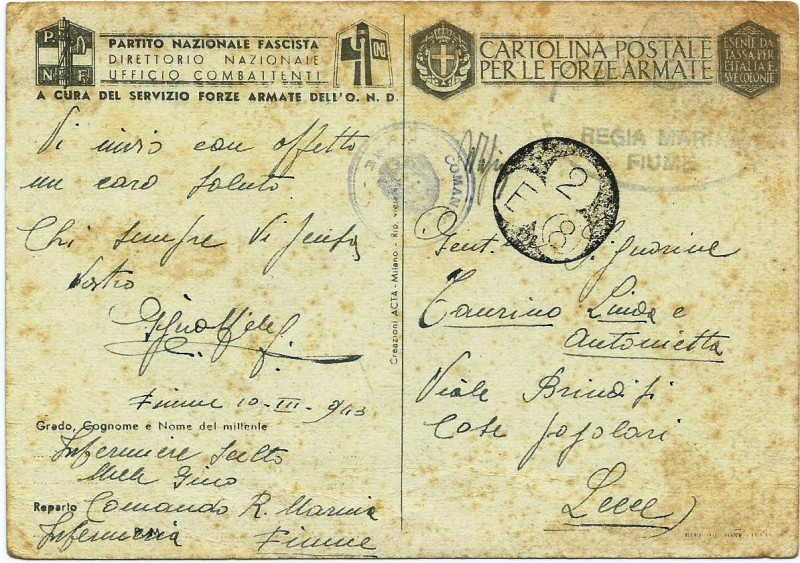 P. N. F.
PARTITO NAZIONALE FASCISTA
DIRETTORIO NAZIONALE
UFFICIO COMBATTENTI
A CURA DEL SERVIZIO FORZE ARMATE DELL'O. N. D.
Vi invio con affetto
un caro saluto
Chi sempre Vi pensa
Vostro
Fiume 10-III-943
Grado, Cognome e Nome del mittente
Infermiere Scelto
Miele Gino
Reparto Comando R. Marina
Infermeria Fiume
Creazioni ACTA - Milano - Rip. viet.
CARTOLINA POSTALE
PER LE FORZE ARMATE
ESENTE DA
TASSA PER
L'ITALIA E
SUE COLONIE
REGIA MARINA
FIUME
COMAN
2
E
8
Gent. Signorine
Taurino Linda e
Antonietta
Viale Brindisi
Case popolari
Lecce